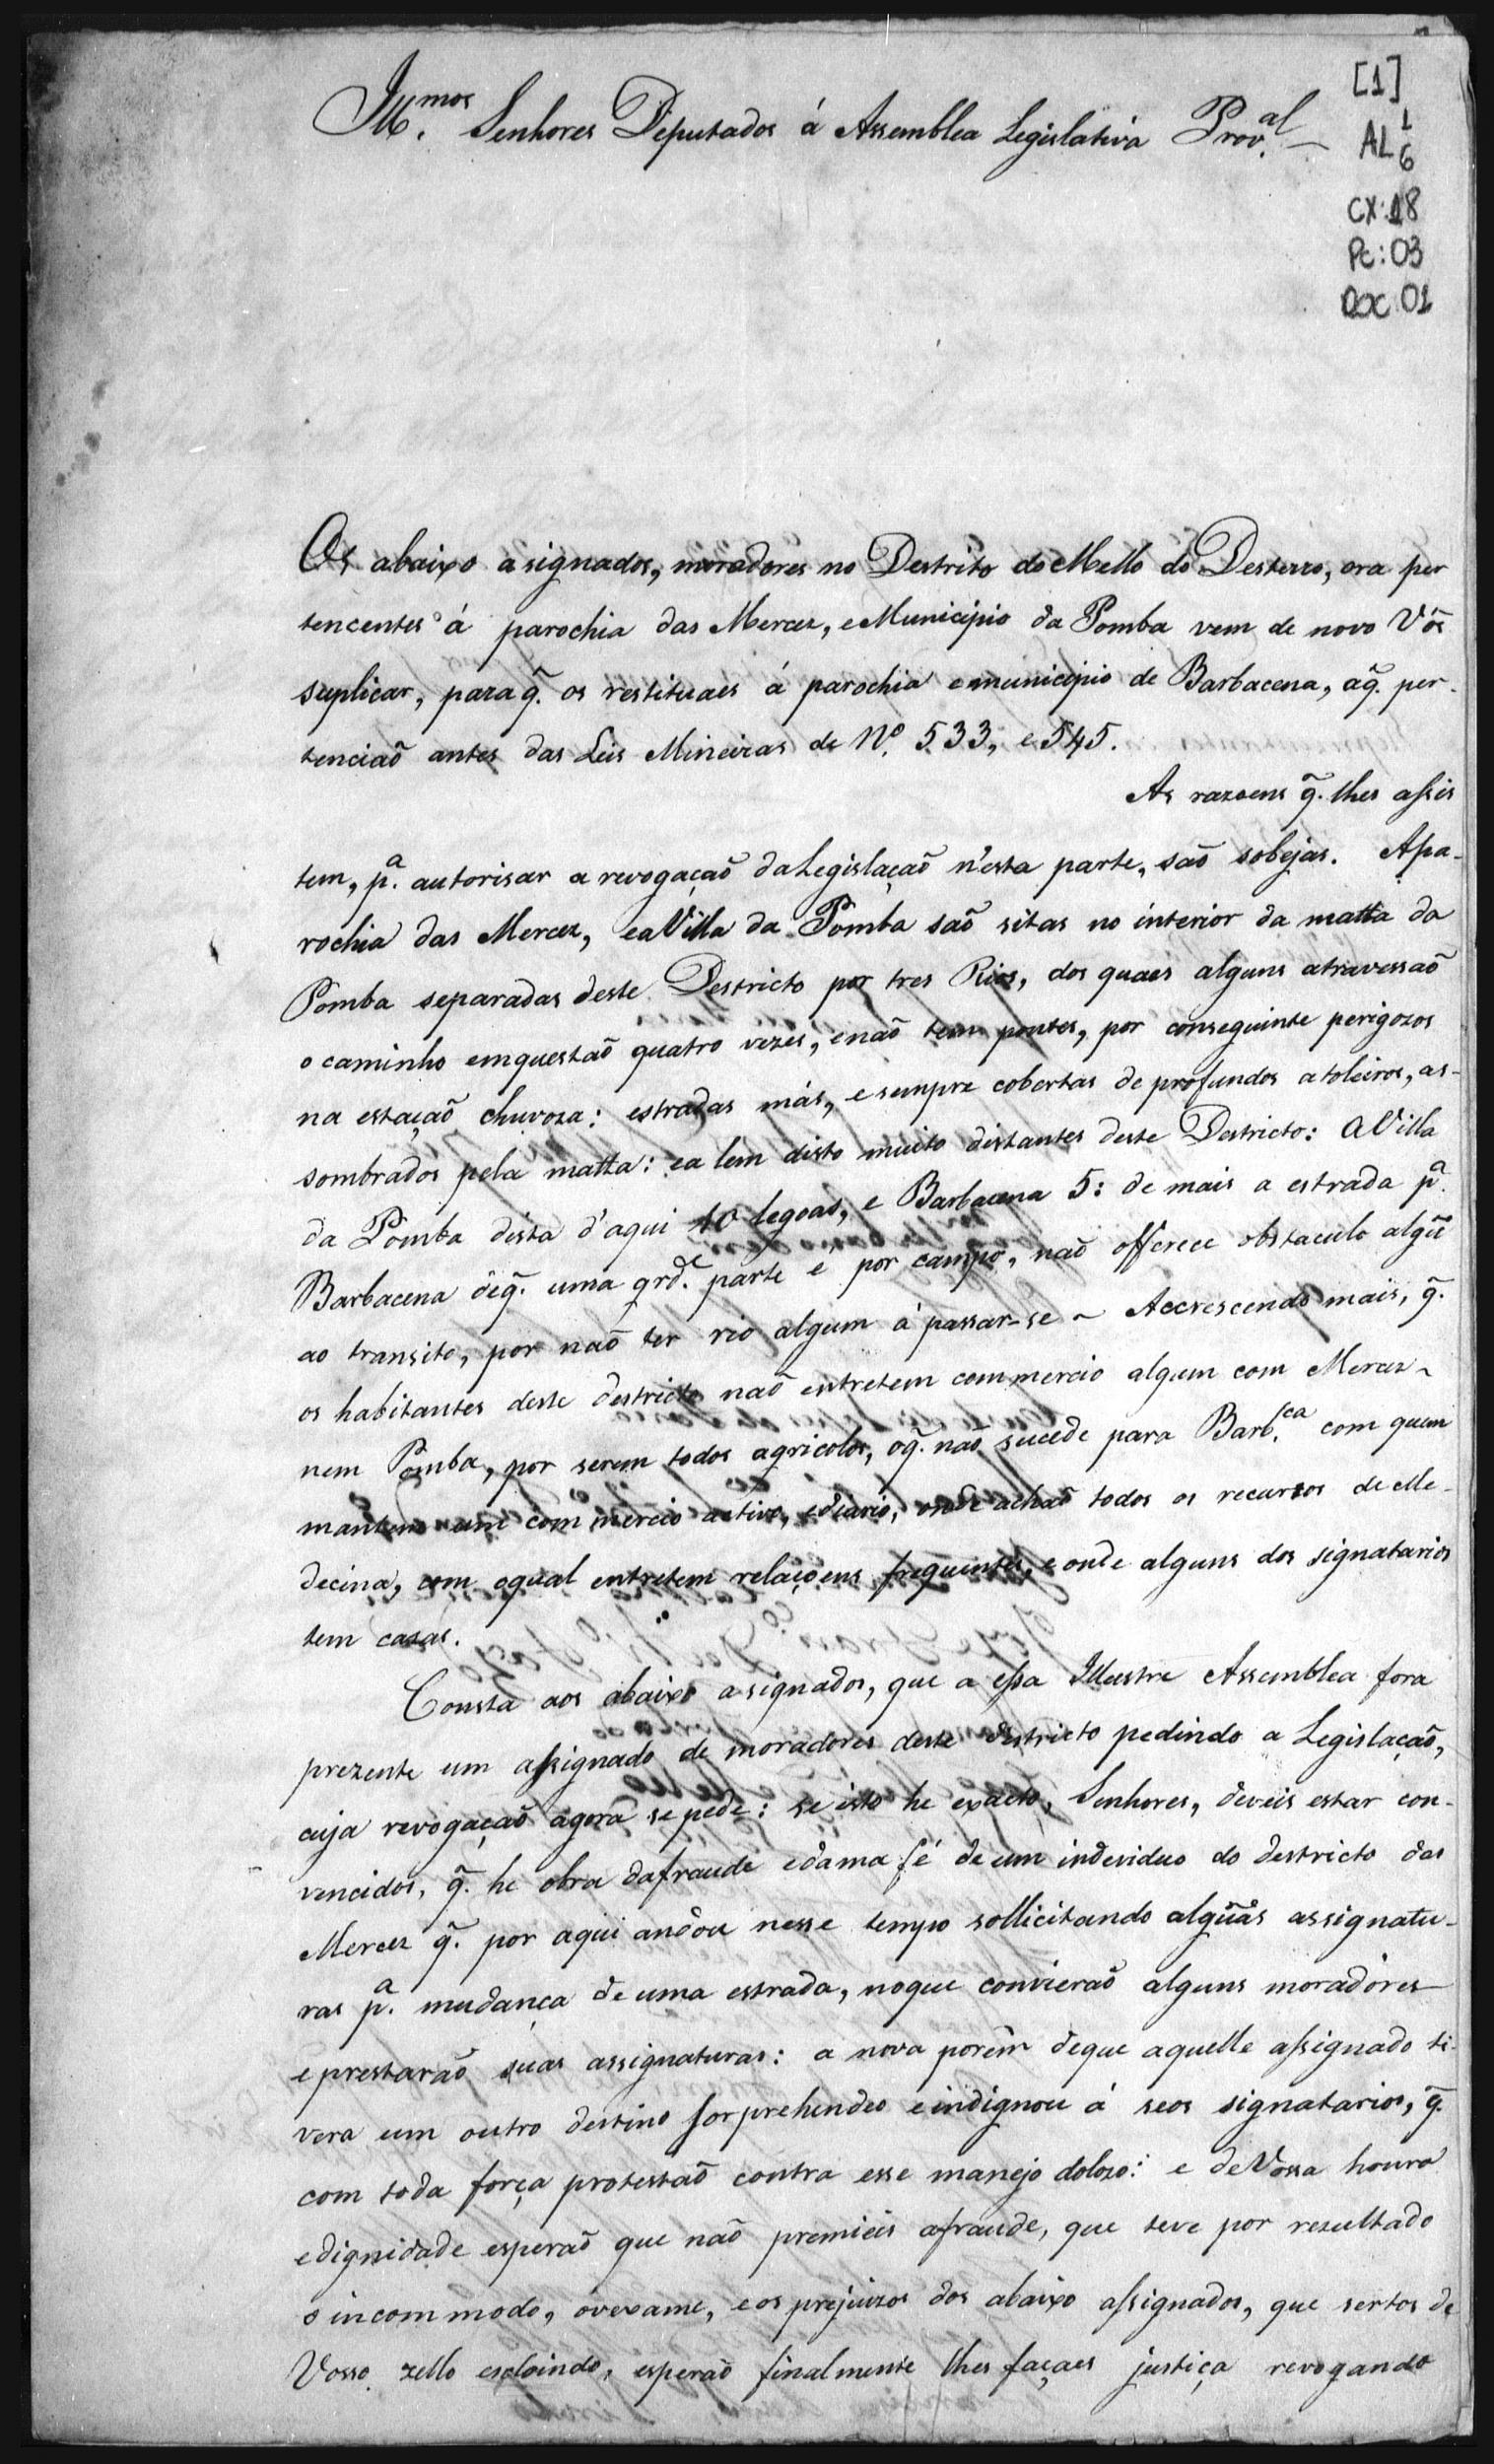 Ill.mos Senhores Deputados á Assemblea Legislativa Prov.al
[1]
AL 1
6
CX: 18
Pc: 03
DOC 01
Os abaixo asignados, moradores no Destrito do Mello do Desterro, ora per
tencentes á parochia das Mercez, e Municipio da Pomba vem de novo Vós
suplicar, para q̃. os restituaes á parochia e municipio de Barbacena, aq̃. per-
tencião antes das Leis Mineiras de Nº. 533, e 545.
As razoens q̃. lhes assis
tem, p.a autorisar a revogação da Legislação n'esta parte, são sobejas. Apa-
rochia das Mercez, ea Villa da Pomba são sitas no interior da matta da
Pomba separadas deste Destricto por tres Rios, dos quaes alguns atravessão
o caminho emquestão quatro vezes, enão tem pontes, por conseguinte perigozos
na estação chuvoza: estradas más, e sempre cobertas de profundos atoleiros, as-
sombrados pela matta: ea lem disto muito distantes deste Destricto: a Villa
da Pomba dista d'aqui 10 legoas, e Barbacena 5: de mais a estrada p.a
Barbacena deq̃. uma grd.e parte é por campo, não offerece obstaculo algũ
ao transito, por não ter rio algum á passar-se ~ Accrescendo mais, q̃.
os habitantes deste destricto não entretem commercio algum com Mercez ~
nem Pomba, por serem todos agricolos, oq̃. não sucede para Barb.ca com quem
mantem um commercio activo, ediario, onde achão todos os recursos de Me-
decina, com oqual entretem relaçoens frequentes, e onde alguns dos signatarios
tem casas.
Consta aos abaixo asignados, que a essa Illustre Assemblea fora
prezente um assignado de moradores deste destricto pedindo a Legislação,
cuja revogação agora se pede: se isto he exacto, Senhores, deveis estar con-
vencidos, q̃. he obra dafraude edama fé de um individuo do destricto das
Mercez q̃. por aqui andou nesse tempo sollicitando algũas assignatu-
ras p.a mudança de uma estrada, noque convierão alguns moradores
e prestarão suas assignaturas: a nova porêm deque aquelle assignado ti-
vera um outro destino sorprehendeo eindignou á seos signatarios, q̃.
com toda força protestão contra esse manejo dolozo: e de Vossa honra
edignidade esperão que não premieis afraude, que teve por resultado
o incommodo, ovexame, eos prejuizos dos abaixo assignados, que sertos de
Vosso zello esperão finalmente lhes façaes justiça revogando